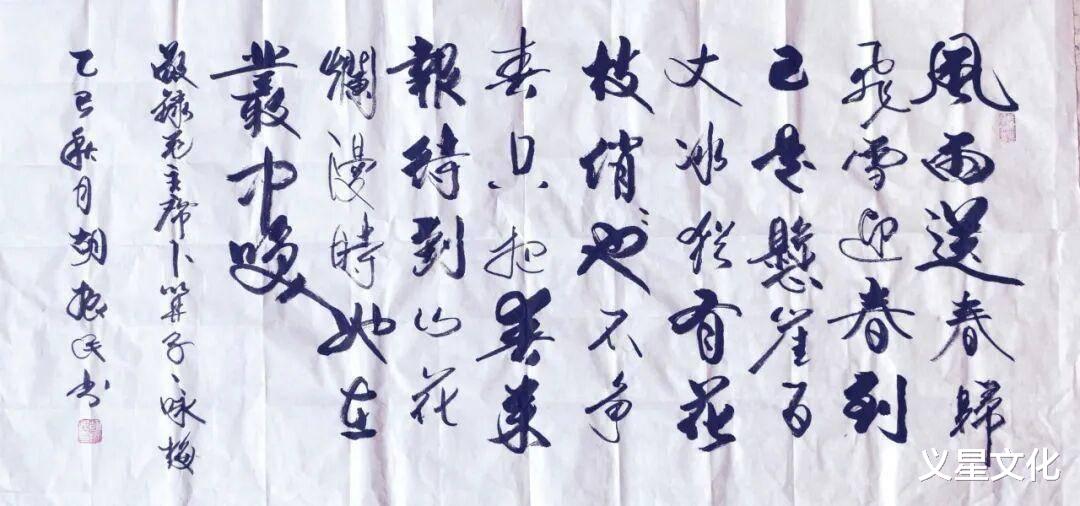 風雨送春歸
飛雪迎春到
已是懸崖百
丈冰猶有花
枝俏〻也不争
春只把春來
報待到山花
爛漫時她在
叢中咲
敬録毛主席卜算子咏梅
乙巳秋月胡振民书
义星文化